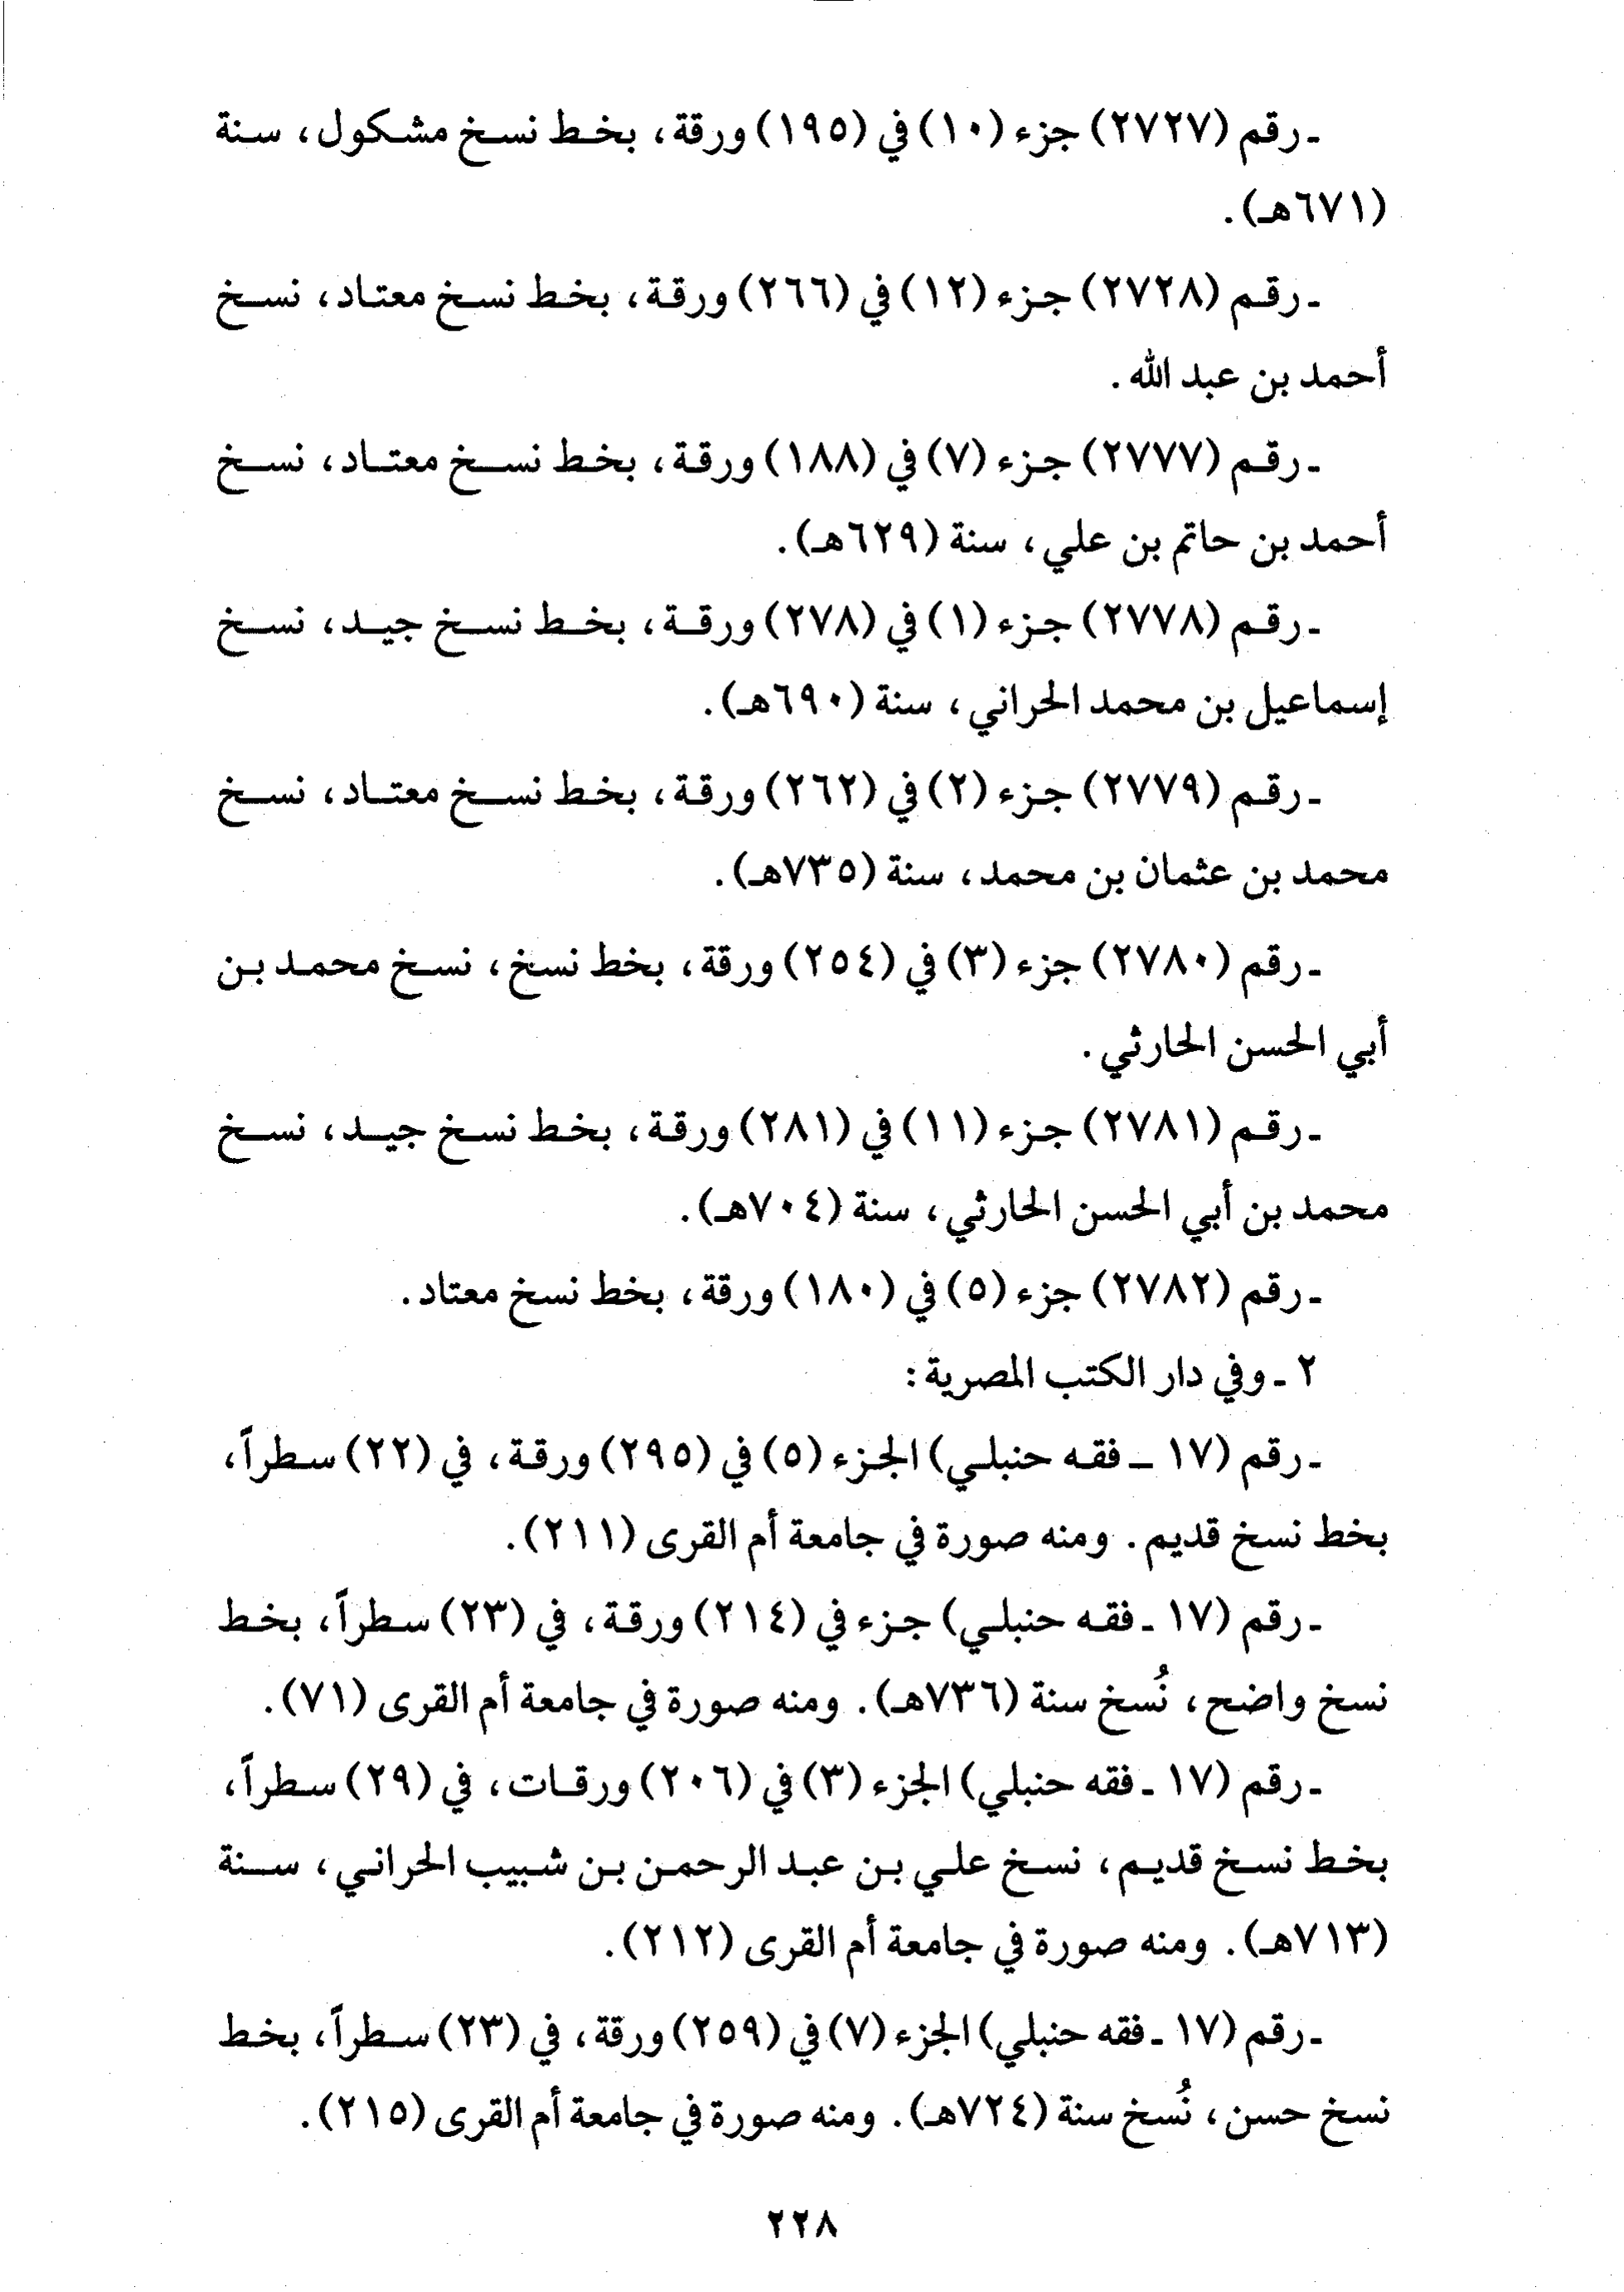 ـ رقم (٢٧٢٧) جزء (١٠) في (١٩٥) ورقة، بخط نسخ مشكول، سنة
(٦٧١هـ).
ـ رقم (٢٧٢٨) جزء (١٢) في (٢٦٦) ورقة، بخط نسخ معتاد، نسخ
أحمد بن عبد الله.
ـ رقم (٢٧٧٧) جزء (٧) في (١٨٨) ورقة، بخط نسخ معتاد، نسخ
أحمد بن حاتم بن علي، سنة (٦٢٩هـ).
ـ رقم (٢٧٧٨) جزء (١) في (٢٧٨) ورقة، بخط نسخ جيد، نسخ
إسماعيل بن محمد الحراني، سنة (٦٩٠هـ).
ـ رقم (٢٧٧٩) جزء (٢) في (٢٦٢) ورقة، بخط نسخ معتاد، نسخ
محمد بن عثمان بن محمد، سنة (٧٣٥هـ).
ـ رقم (٢٧٨٠) جزء (٣) في (٢٥٤) ورقة، بخط نسخ، نسخ محمد بن
أبي الحسن الحارثي.
ـ رقم (٢٧٨١) جزء (١١) في (٢٨١) ورقة، بخط نسخ جيد، نسخ
محمد بن أبي الحسن الحارثي، سنة (٧٠٤هـ).
ـ رقم (٢٧٨٢) جزء (٥) في (١٨٠) ورقة، بخط نسخ معتاد.
٢ ـ وفي دار الكتب المصرية:
ـ رقم (١٧ ـ فقه حنبلي) الجزء (٥) في (٢٩٥) ورقة، في (٢٢) سطراً،
بخط نسخ قديم. ومنه صورة في جامعة أم القرى (٢١١).
ـ رقم (١٧ ـ فقه حنبلي) جزء في (٢١٤) ورقة، في (٢٣) سطراً، بخط
نسخ واضح، نُسخ سنة (٧٣٦هـ). ومنه صورة في جامعة أم القرى (٧١).
ـ رقم (١٧ ـ فقه حنبلي) الجزء (٣) في (٢٠٦) ورقات، في (٢٩) سطراً،
بخط نسخ قديم، نسخ علي بن عبد الرحمن بن شبيب الحراني، سنة
(٧١٣هـ). ومنه صورة في جامعة أم القرى (٢١٢).
ـ رقم (١٧ ـ فقه حنبلي) الجزء (٧) في (٢٥٩) ورقة، في (٢٣) سطراً، بخط
نسخ حسن، نُسخ سنة (٧٢٤هـ). ومنه صورة في جامعة أم القرى (٢١٥).
٢٢٨